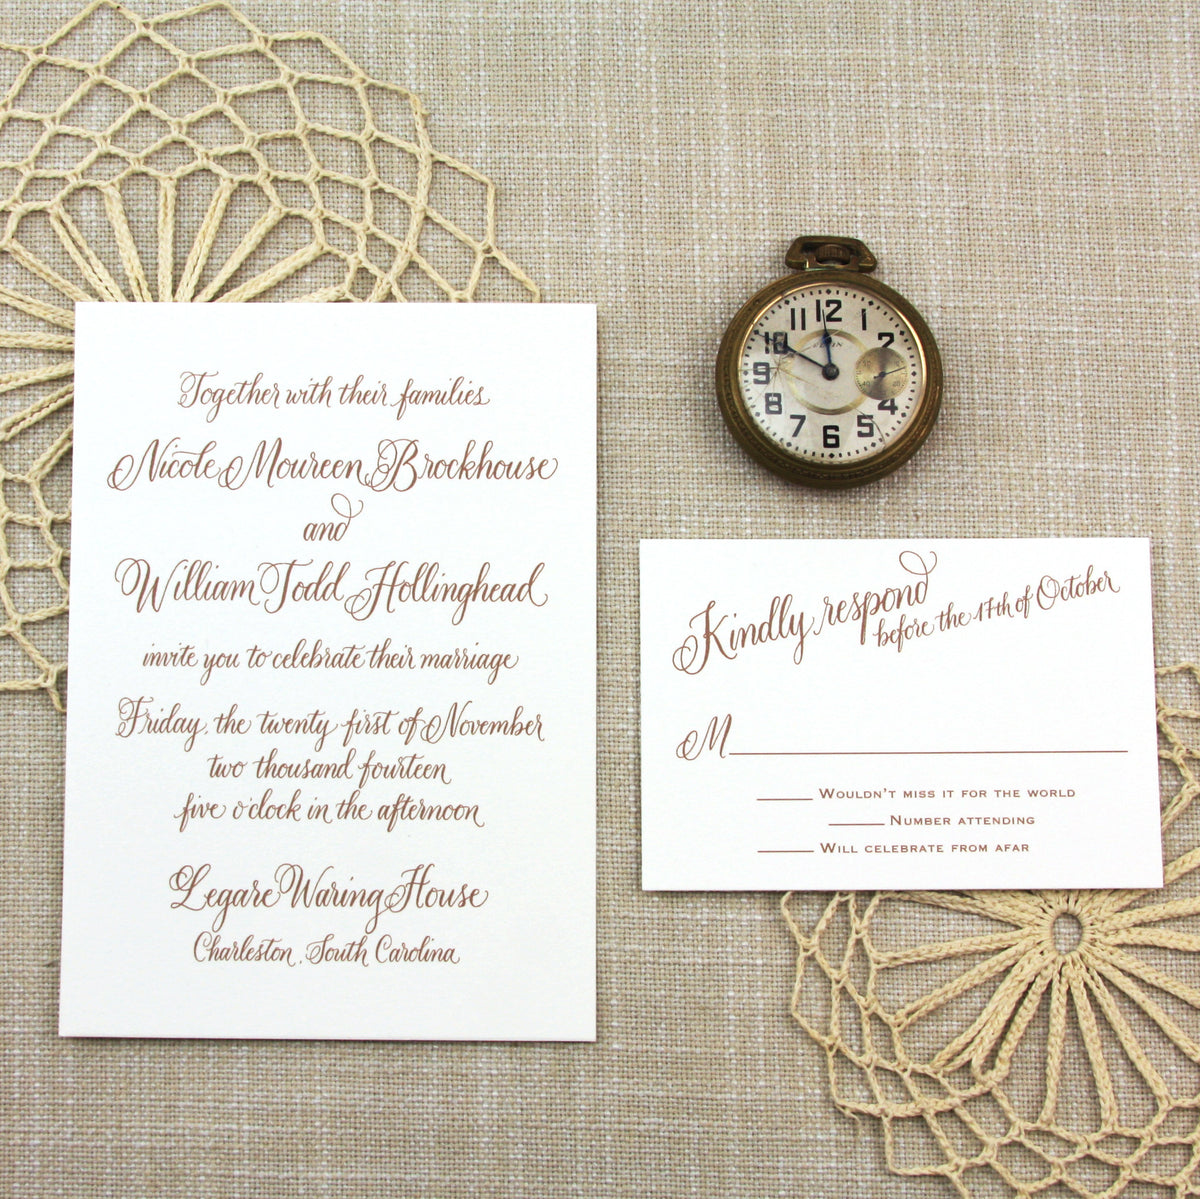 Together with their families
Nicole Moureen Brockhouse
and
William Todd Hollinghead
invite you to celebrate their marriage
Friday, the twenty first of November
two thousand fourteen
five o'clock in the afternoon
Legare Waring House
Charleston, South Carolina
12
11
2
10
9
8
4
7
5
6
Kindly respond
before the 17th of October
M
Wouldn't miss it for the world
Number attending
Will celebrate from afar